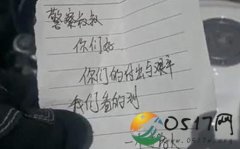 警察叔叔
你们好
你们的付出与艰辛
我们看的到
0517网
www.0517w.com